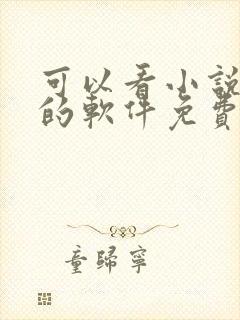 可以看小說
的軟件免費
童歸寧